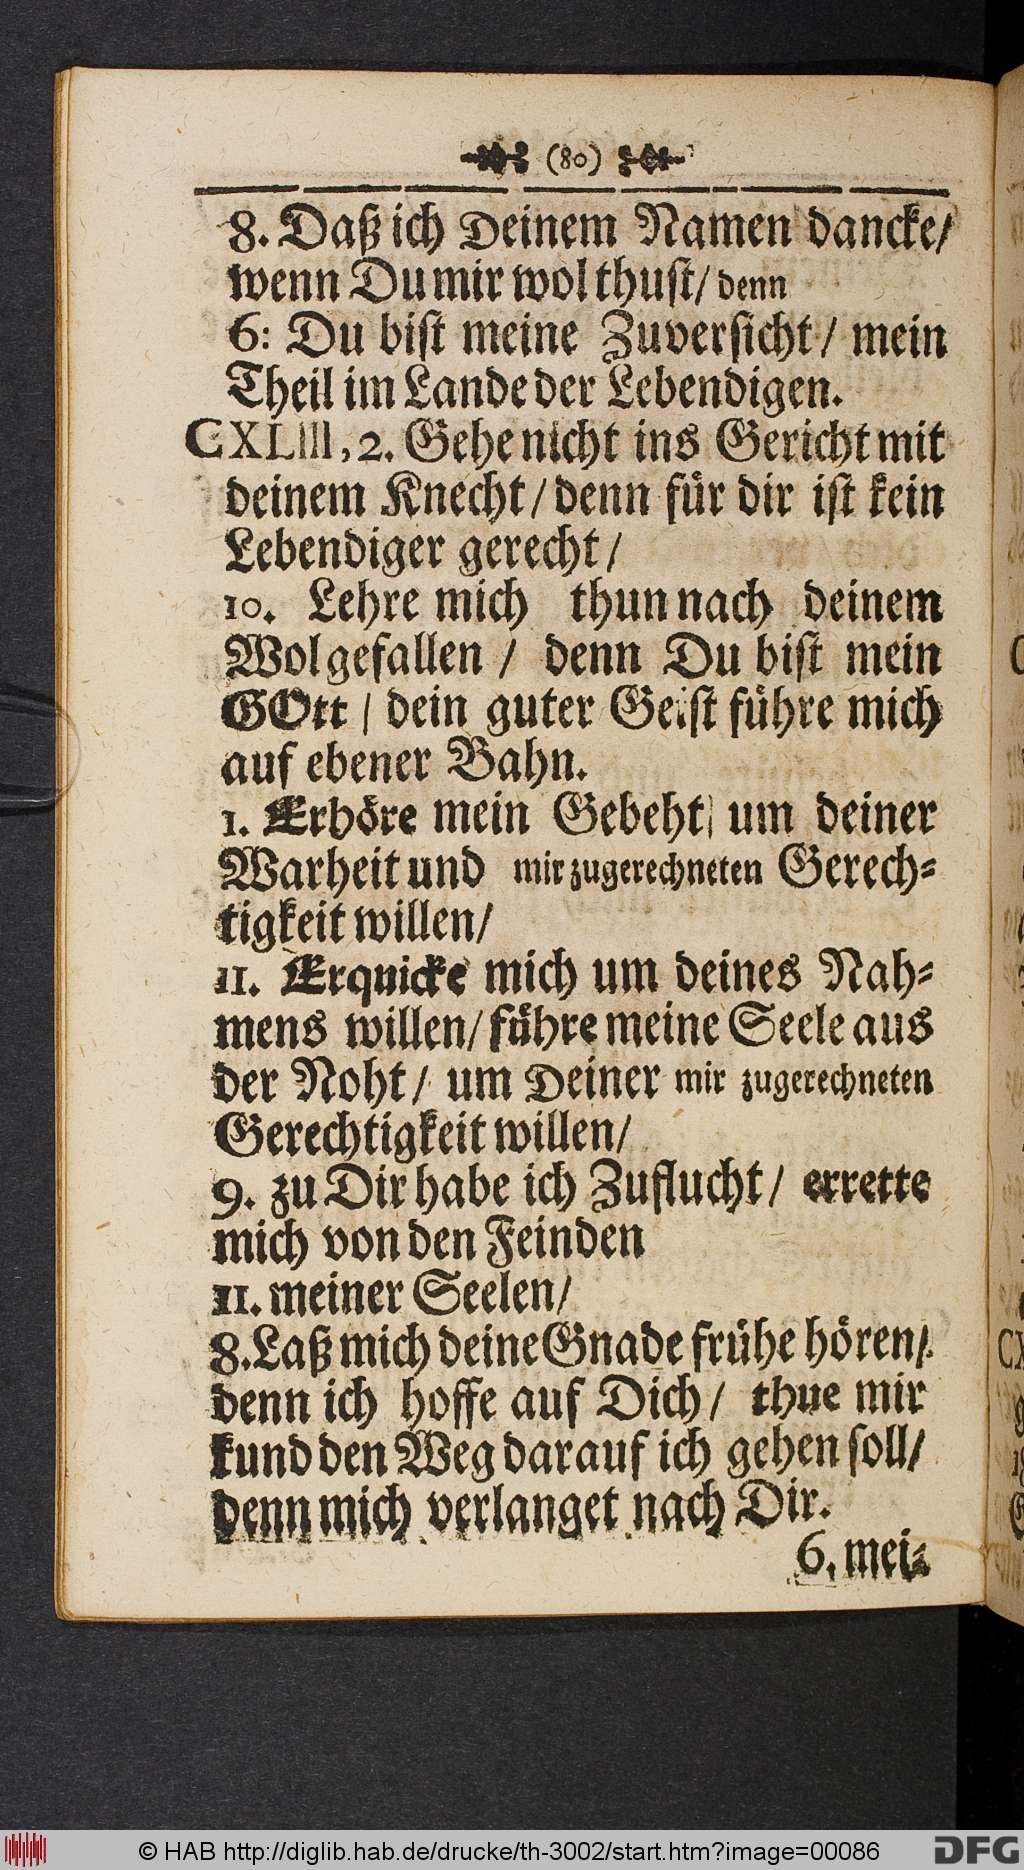 (80)
8. Daß ich Deinem Namen dancke/
wenn Du mir wol thust/ denn
6: Du bist meine Zuversicht/ mein
Theil im Lande der Lebendigen.
CXLIII, 2. Gehe nicht ins Gericht mit
deinem Knecht/ denn für dir ist kein
Lebendiger gerecht/
10. Lehre mich thun nach deinem
Wolgefallen/ denn Du bist mein
GOtt/ dein guter Geist führe mich
auf ebener Bahn.
1. Erhöre mein Gebeht/ um deiner
Warheit und mir zugerechneten Gerech-
tigkeit willen/
11. Erquicke mich um deines Nah-
mens willen/ führe meine Seele aus
der Noht/ um Deiner mir zugerechneten
Gerechtigkeit willen/
9. zu Dir habe ich Zuflucht/ errette
mich von den Feinden
11. meiner Seelen/
8. Laß mich deine Gnade frühe hören/
denn ich hoffe auf Dich/ thue mir
kund den Weg darauf ich gehen soll/
denn mich verlanget nach Dir.
6. mei-
© HAB http://diglib.hab.de/drucke/th-3002/start.htm?image=00086
DFG